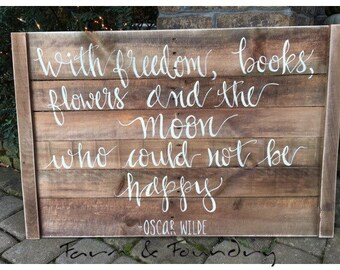 with freedom, books,
flowers and the
moon
who could not be
happy
-OSCAR WILDE
Farm & Foundry